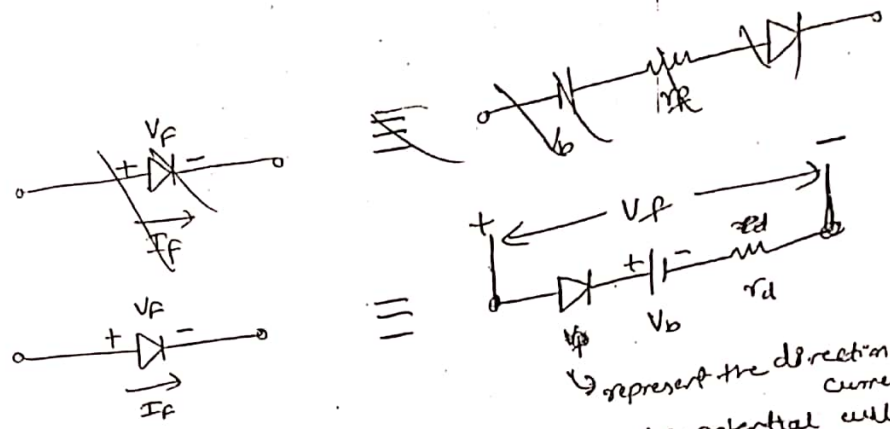 V_F
+ -
I_F
≡
V_b
+ V_f -
V_F
+ -
I_F
≡
+ -
V_b
r_d
represent the direction
curre
potential will